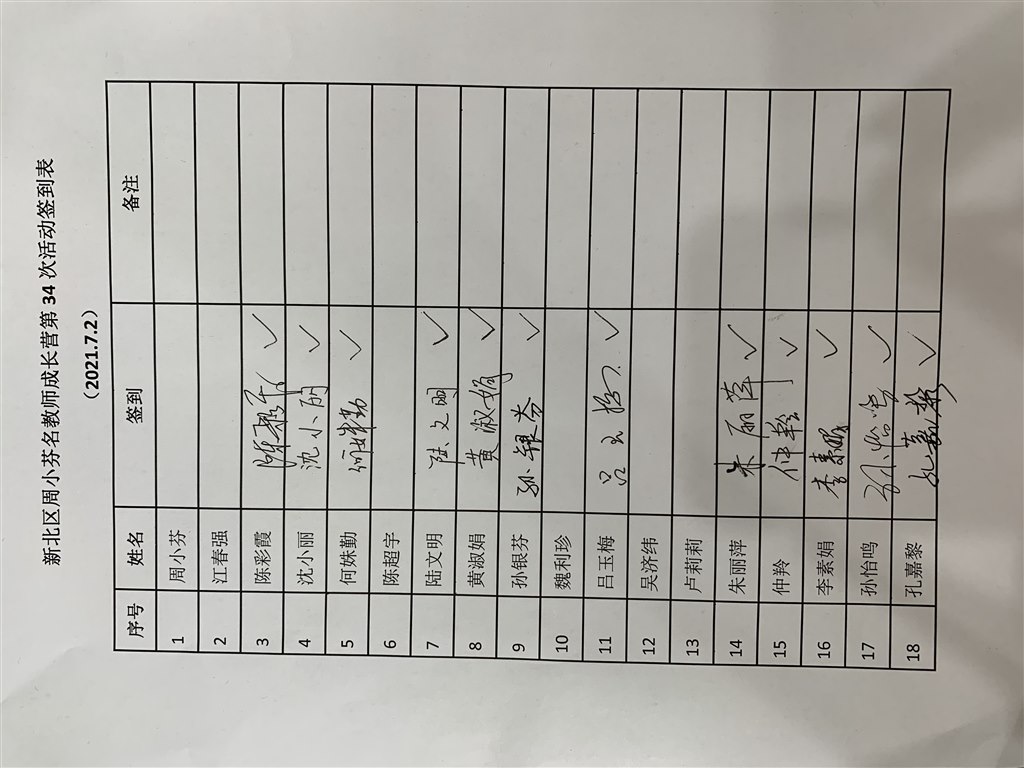 新北区周小芬名教师成长营第 34 次活动签到表
（2021.7.2）
序号 姓名 签到 备注
1 周小芬
2 江春强
3 陈彩霞 陈彩霞 ✓
4 沈小丽 沈小丽 ✓
5 何姝勤 何姝勤 ✓
6 陈超宇
7 陆文明 陆文明 ✓
8 黄淑娟 黄淑娟 ✓
9 孙银芬 孙银芬 ✓
10 魏利珍
11 吕玉梅 吕玉梅 ✓
12 吴济纬
13 卢莉莉
14 朱丽萍 朱丽萍 ✓
15 仲羚 仲羚 ✓
16 李素娟 李素娟 ✓
17 孙怡鸣 孙怡鸣 ✓
18 孔嘉黎 孔嘉黎 ✓